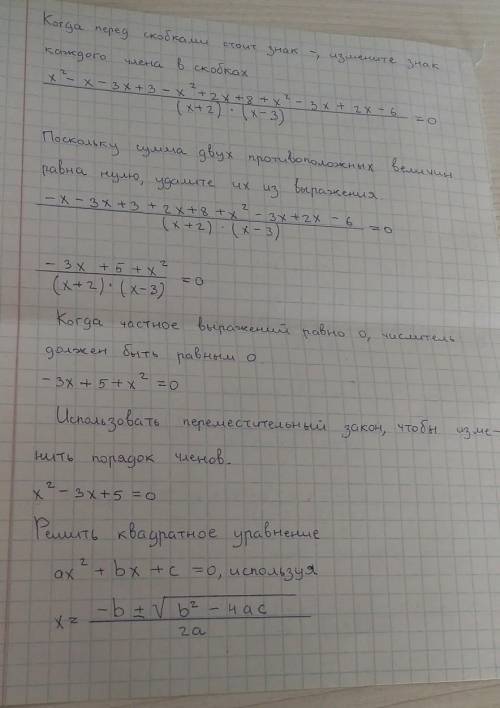 Когда перед скобками стоит знак -, измените знак
каждого члена в скобках
x² - x - 3x + 3 - x² + 2x + 8 + x² - 3x + 2x - 6
(x+2) · (x-3)
=0
Поскольку сумма двух противоположных величин
равна нулю, удалите их из выражения.
-x - 3x + 3 + 2x + 8 + x² - 3x + 2x - 6
(x+2) · (x-3)
=0
- 3x + 5 + x²
(x+2) · (x-3)
=0
Когда частное выражений равно 0, числитель
должен быть равным 0
- 3x + 5 + x² = 0
Использовать переместительный закон, чтобы изме-
нить порядок членов.
x² - 3x + 5 = 0
Решить квадратное уравнение
ax² + bx + c = 0, используя
x = -b ± √b² - 4ac
2a